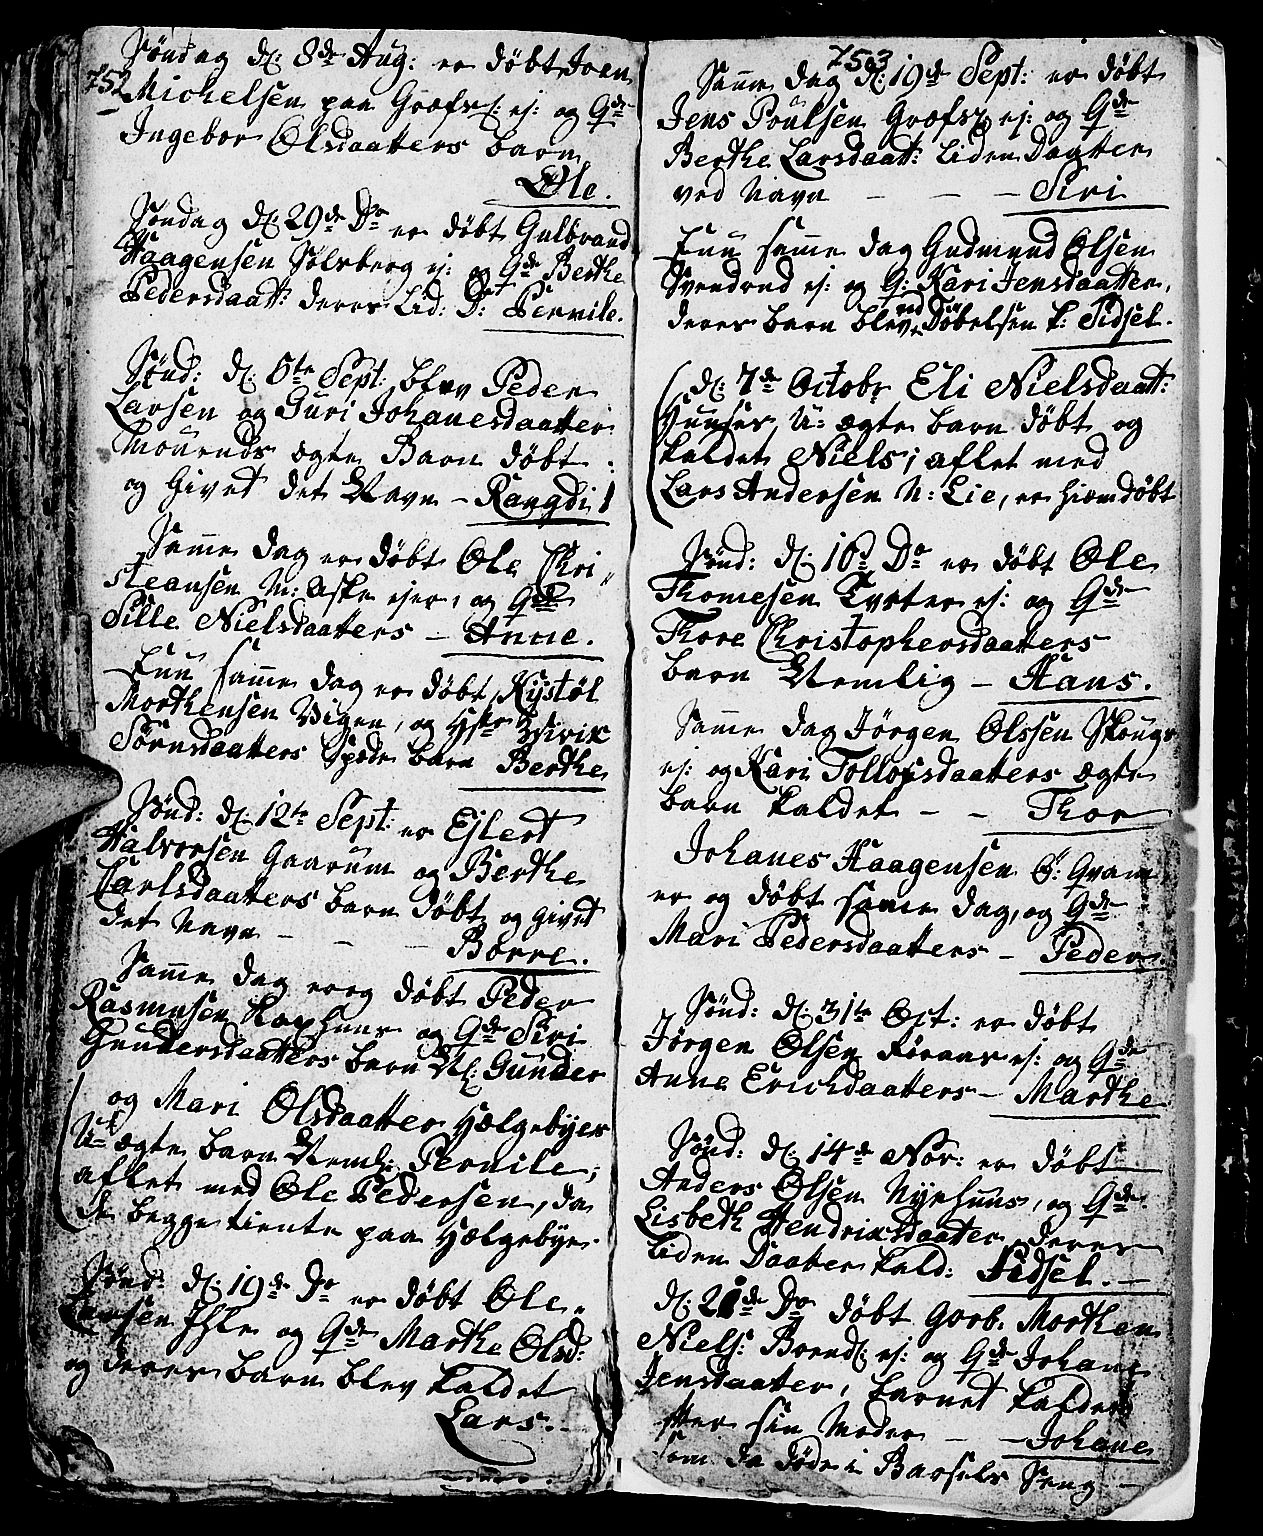 752
Søndag d: 8de Aug: er døbt Joen
Michelsen paa Grofs: ej: og Gde
Ingebor Olsdaatters barn
Ole.
Søndag d: 29de Do er døbt Gulbrand
Haagensen Solsberg ej: og Gde Berthe
Pedersdaatt: deres Lid: D: Pernile.
Sønd: d: 5te Sept: blev Peder
Larsen og Guri Johanesdaatter
Mouruds ægte Barn døbt
og Givet det Navn – Rangdi
Samme dag er døbt Ole Chri
steansen N: Aske ejer, og Gde
Sille Nielsdaatters – Anne.
End samme dag er døbt Kystøl
Morthensen Vigen, og Hstr Wivix
Sørnsdaatters Spæde barn Berthe
Sønd: d: 12te Sept: er Ejlert
Halvorsen Gaarum og Berthe
Carlsdaatters barn døbt og givet
det Navn – – – Borre.
Samme dag er og døbt Peder
Rasmusen Haxhuus og Gde Siri
Gundersdaatters barn N: Gunder
og Mari Olsdaatter Hælgebyes
U=ægte barn Neml: Pernile,
aflet med Ole Pedersen, da
de begge tiente paa Hælgebye.
Sønd: d: 19de Do er døbt Ole
Larsen Ihle og Gde Marthe Olsd:
og deres barn blev kaldet
Lars.
753
Samme dag d: 19de Sept: er døbt
Jens Poulsen Grofs: ej: og Gde
Berthe Larsdaatt: liden Dagtter
ved Navn – – – Siri
End samme dag Gudmund Olsen
Svendrud ej: og G: Kari Jensdaatter,
deres barn blev ved Døbelsen k: Sidsel.
d: 7de Octobr Eli Nielsdaatt:
Huuses, U: ægte barn døbt og
kaldet Niels; aflet med
Lars Andersen N: Lie, er hiemdøbt
Sønd: d: 10de Do er døbt Ole
Thomesen Tveter ej: og Gde
Thore Christophersdaatters
barn Nemlig – Hans.
Samme dag Jørgen Olssen Skougs
ej: og Kari Tollofsdaatters ægte
barn kaldet – – Thor
Johanes Haagensen Ø: Qvam
er og døbt same dag, og Gde
Mari Pedersdaatters – Peder.
Sønd: d: 31te Oct: er døbt
Jørgen Olsen Foraas ej: og Gde
Anne Erichdaatters – Marthe
Sønd: d: 14de Nov: er døbt
Anders Olsen Nyehuus, og Gde
Lisbeth Hendrixdaatter, deres
liden Daatter kald: Sidsel. –
d: 21de Do døbt Gorb. Morthen
Niels: Borud: ej: og Gde Johane
Jensdaatter, barnet kaldet
efter sin Moder – – Johane
som da døde i Barsels Seng –